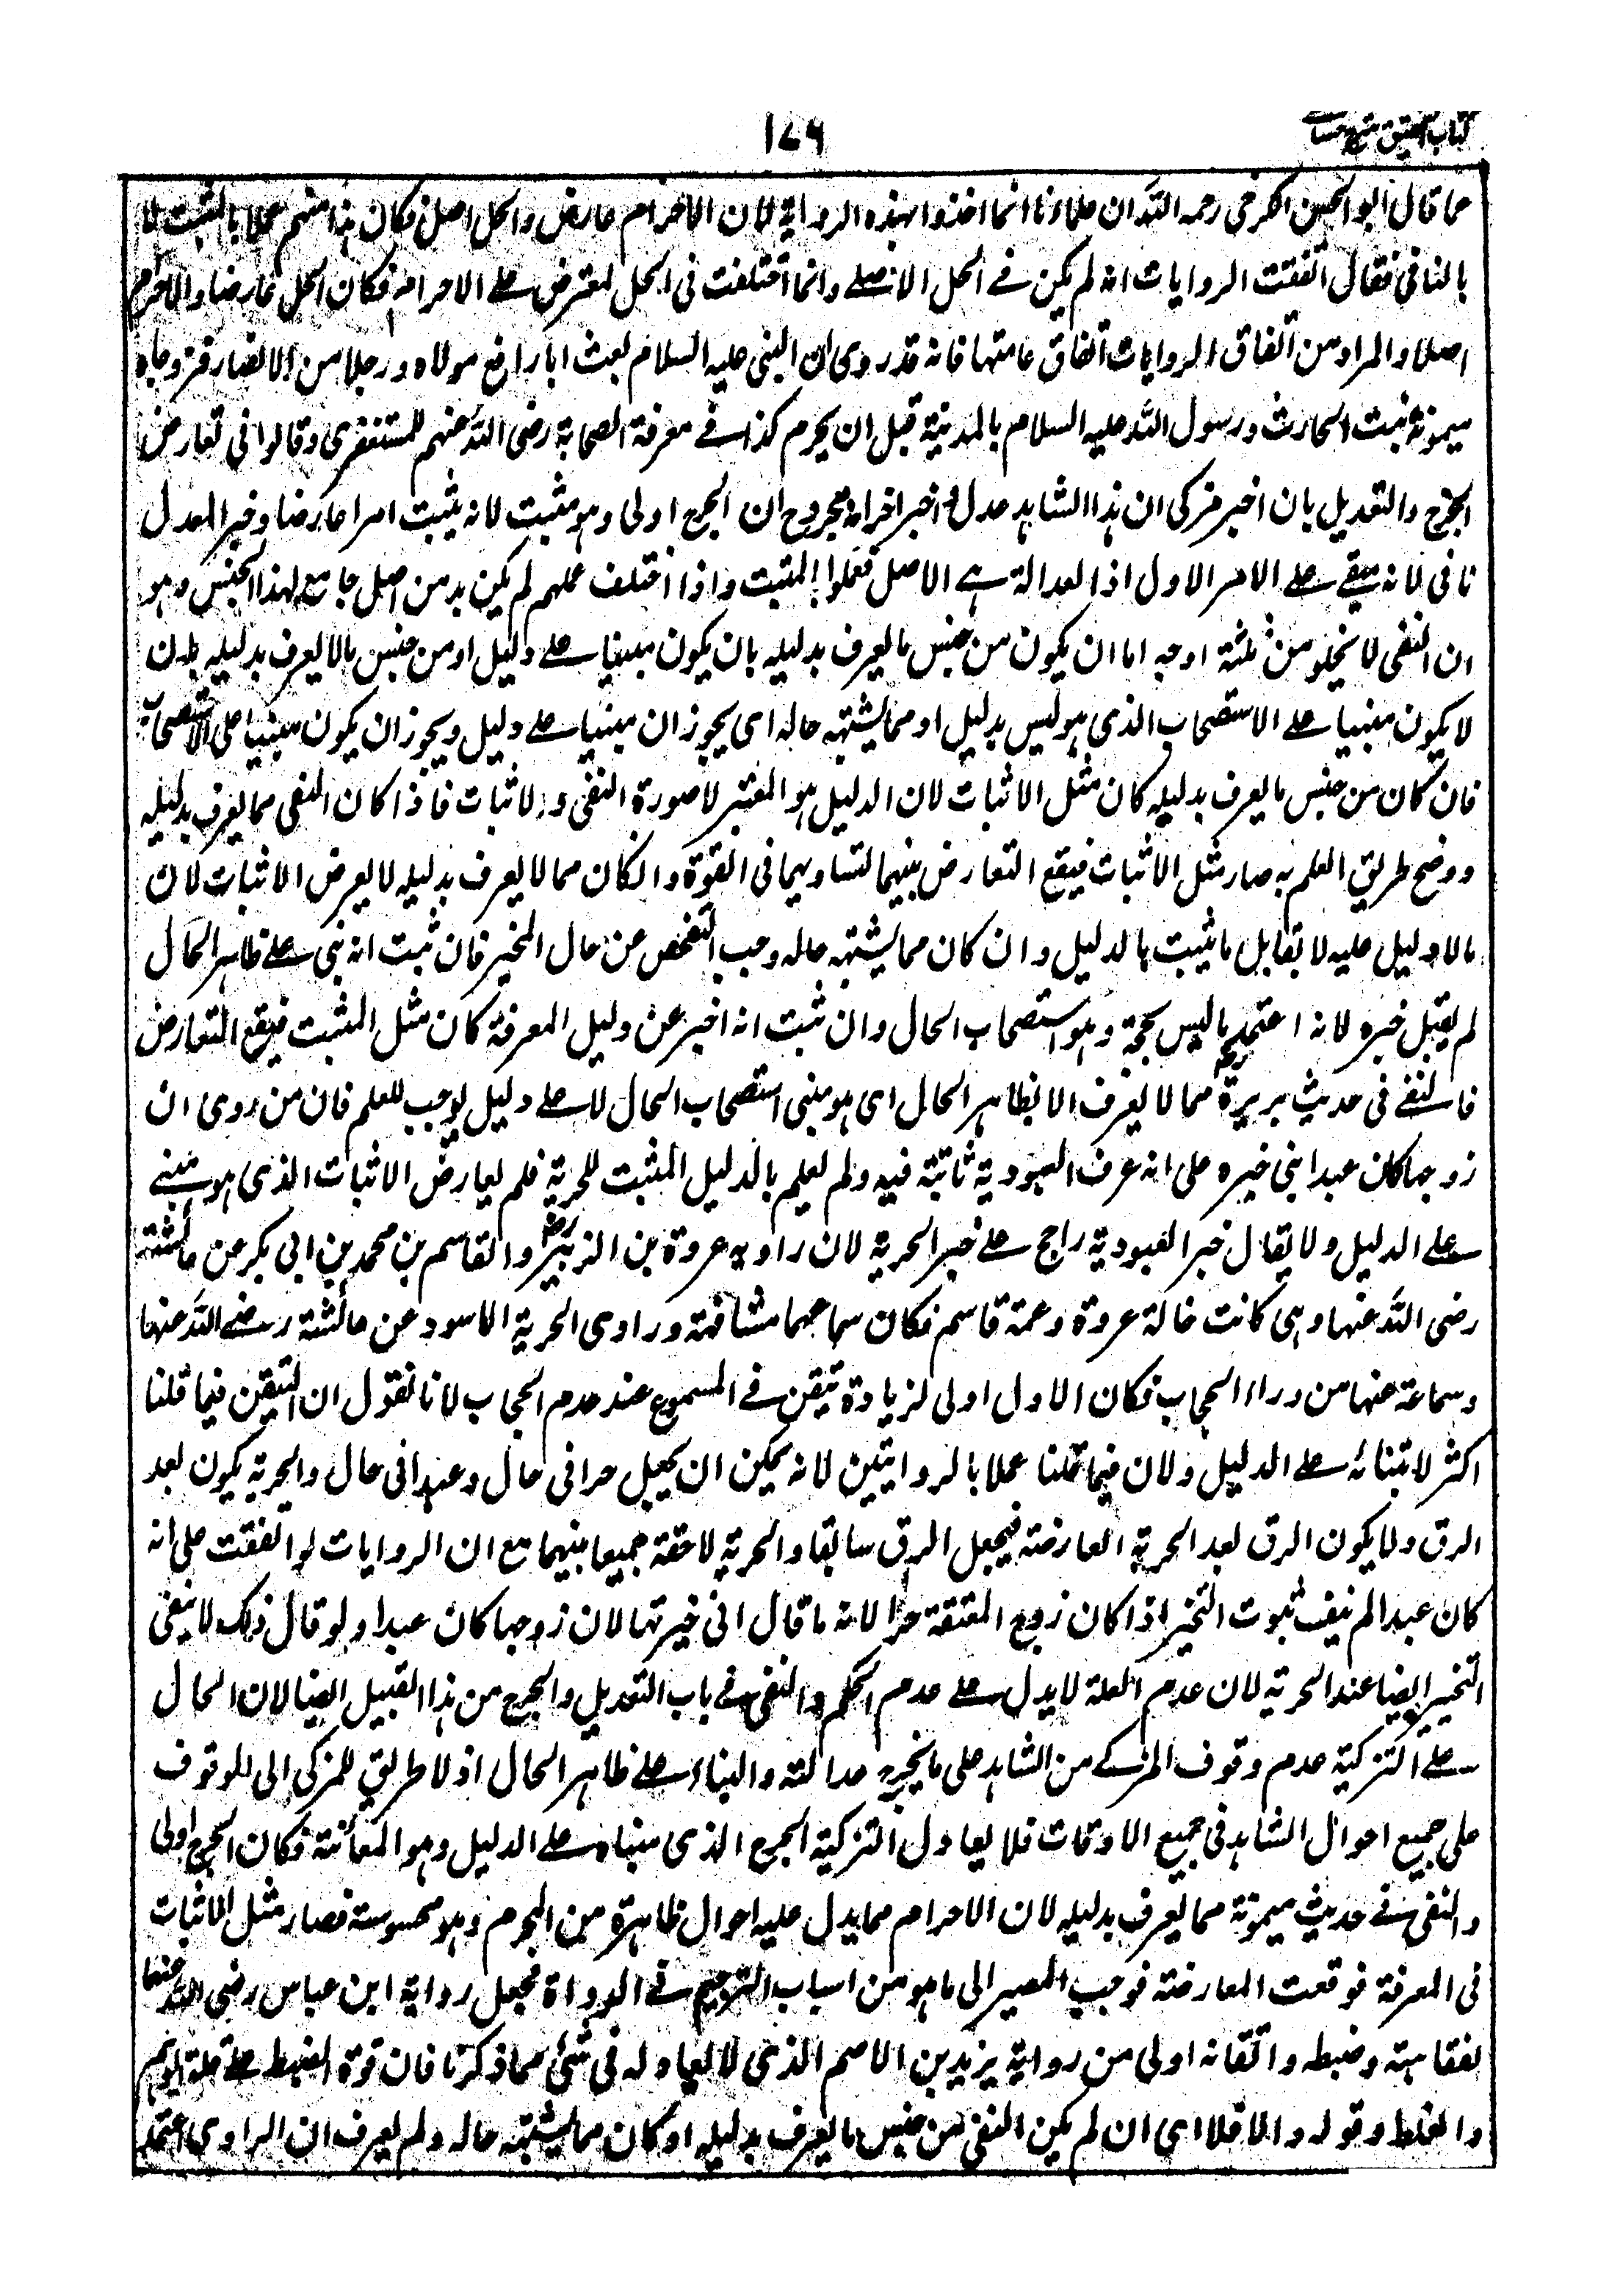 كتاب التحقيق شرح حسامى
١٧٩
مما قال ابو الحسن الكرخى رحمه الله ان علماءنا انما اخذوا بهذه الرواية لان الاحرام عارض والحل اصل فكان هذا منهم عملا بالمثبت لا
بالنافى فقال اتفقت الروايات انه لم يكن فى الحل الاصلى وانما اختلفت فى الحل المعترض على الاحرام فكان الحل عارضا والاحرام
اصلا والمراد من اتفاق الروايات اتفاق عامتها فانه قد روى ان النبى عليه السلام بعث ابا رافع مولاه ورجلا من الانصار فزوجاه
ميمونة بنت الحارث ورسول الله عليه السلام بالمدينة قبل ان يحرم كذا فى معرفة الصحابة رضى الله عنهم للمستغفرى وقالوا فى تعارض
الجرح والتعديل بان اخبر مزكى ان هذا الشاهد عدل واخبر اخر انه مجروح ان الجرح اولى وهو مثبت لانه يثبت امرا عارضا وخبر المعدل
نافى لانه يبقى على الامر الاول اذ العدالة هى الاصل فعملوا بالمثبت واذا اختلف عملهم لم يكن بد من اصل جامع لهذا الجنس وهو
ان النفى لا يخلو من ثلثة اوجه اما ان يكون من جنس ما يعرف بدليله بان يكون مبنيا على دليل او من جنس ما لا يعرف بدليله بان
لا يكون مبنيا على الاستصحاب الذى هو ليس بدليل او مما يشتبه حاله اى يجوز ان مبنيا على دليل ويجوز ان يكون مبنيا على الاستصحاب
فان كان من جنس ما يعرف بدليله كان مثل الاثبات لان الدليل هو المعتبر لا صورة النفى والاثبات فاذا كان النفى مما يعرف بدليله
ووضح طريق العلم به صار مثل الاثبات فيقع التعارض بينهما لتساويهما فى القوة وان كان مما لا يعرف بدليله لا يعرض الاثبات لان
ما لا دليل عليه لا تقابل ما يثبت بالدليل وان كان مما يشتبه حاله وجب التفحص عن حال المخبر فان ثبت انه بنى على ظاهر الحال
لم يقبل خبره لانه اعتمد ما ليس بحجة وهو استصحاب الحال وان ثبت انه اخبر عن دليل المعرفة كان مثل المثبت فيقع التعارض
فالنفى فى حديث بريرة مما لا يعرف الا بظاهر الحال اى هو مبنى استصحاب الحال لا على دليل يوجب للعلم فان من روى ان
زوجها كان عبدا بنى خبره على انه عرف العبودية ثابتة فيه ولم يعلم بالدليل المثبت للحرية فلم يعارض الاثبات الذى هو مبنى
على الدليل ولا يقال خبر العبودية راجح على خبر الحرية لان راويه عروة بن الزبير رض والقاسم بن محمد بن ابى بكر عن عائشة
رضى الله عنها وهى كانت خالة عروة وعمة قاسم فكان سماعهما مشافهة وراوى الحرية الاسود عن عائشة رضى الله عنها
وسماعه عنها من وراء الحجاب فكان الاول اولى لزيادة تيقن فى المسموع عند عدم الحجاب لانا نقول ان التيقن فيما قلنا
اكثر لابتنائه على الدليل ولان فيما قلنا عملا بالروايتين لانه يمكن ان يجعل حرا فى حال وعبدا فى حال والحرية يكون بعد
الرق ولا يكون الرق بعد الحرية العارضة فيجعل الرق سابقا والحرية لاحقة جميعا بينهما مع ان الروايات لو اتفقت على انه
كان عبدا لم ينف ثبوت التخير اذا كان زوج المعتقة حرا لانه ما قال انى خيرتها لان زوجها كان عبدا ولو قال ذلك لا ينفى
التخيير ايضا عند الحرية لان عدم العلة لا يدل على عدم الحكم والنفى فى باب التعديل والجرح من هذا القبيل ايضا لان الحال
على التزكية عدم وقوف المزكى من الشاهد على ما يجرح عدالته والبناء على ظاهر الحال اذ لا طريق للمزكى الى الوقوف
على جميع احوال الشاهد فى جميع الاوقات فلا يعادل التزكية الجرح الذى مبناه على الدليل وهو المعائنة فكان الجرح اولى
والنفى فى حديث ميمونة مما يعرف بدليله لان الاحرام مما يدل عليه احوال ظاهرة من المحرم وهو محسوسة فصار مثل الاثبات
فى المعرفة فوقعت المعارضة فوجب المصير الى ما هو من اسباب الترجيح فى الرواة فجعل رواية ابن عباس رضى الله عنهما
لفقاهته وضبطه واتقانه اولى من رواية يزيد بن الاصم الذى لا يعادله فى شئ مما ذكرنا فان قوة الضبط على قلة الوهم
والغلط وقوله والا فلا اى ان لم يكن النفى من جنس ما يعرف بدليله او كان مما يشتبه حاله ولم يعرف ان الراوى اعتمد